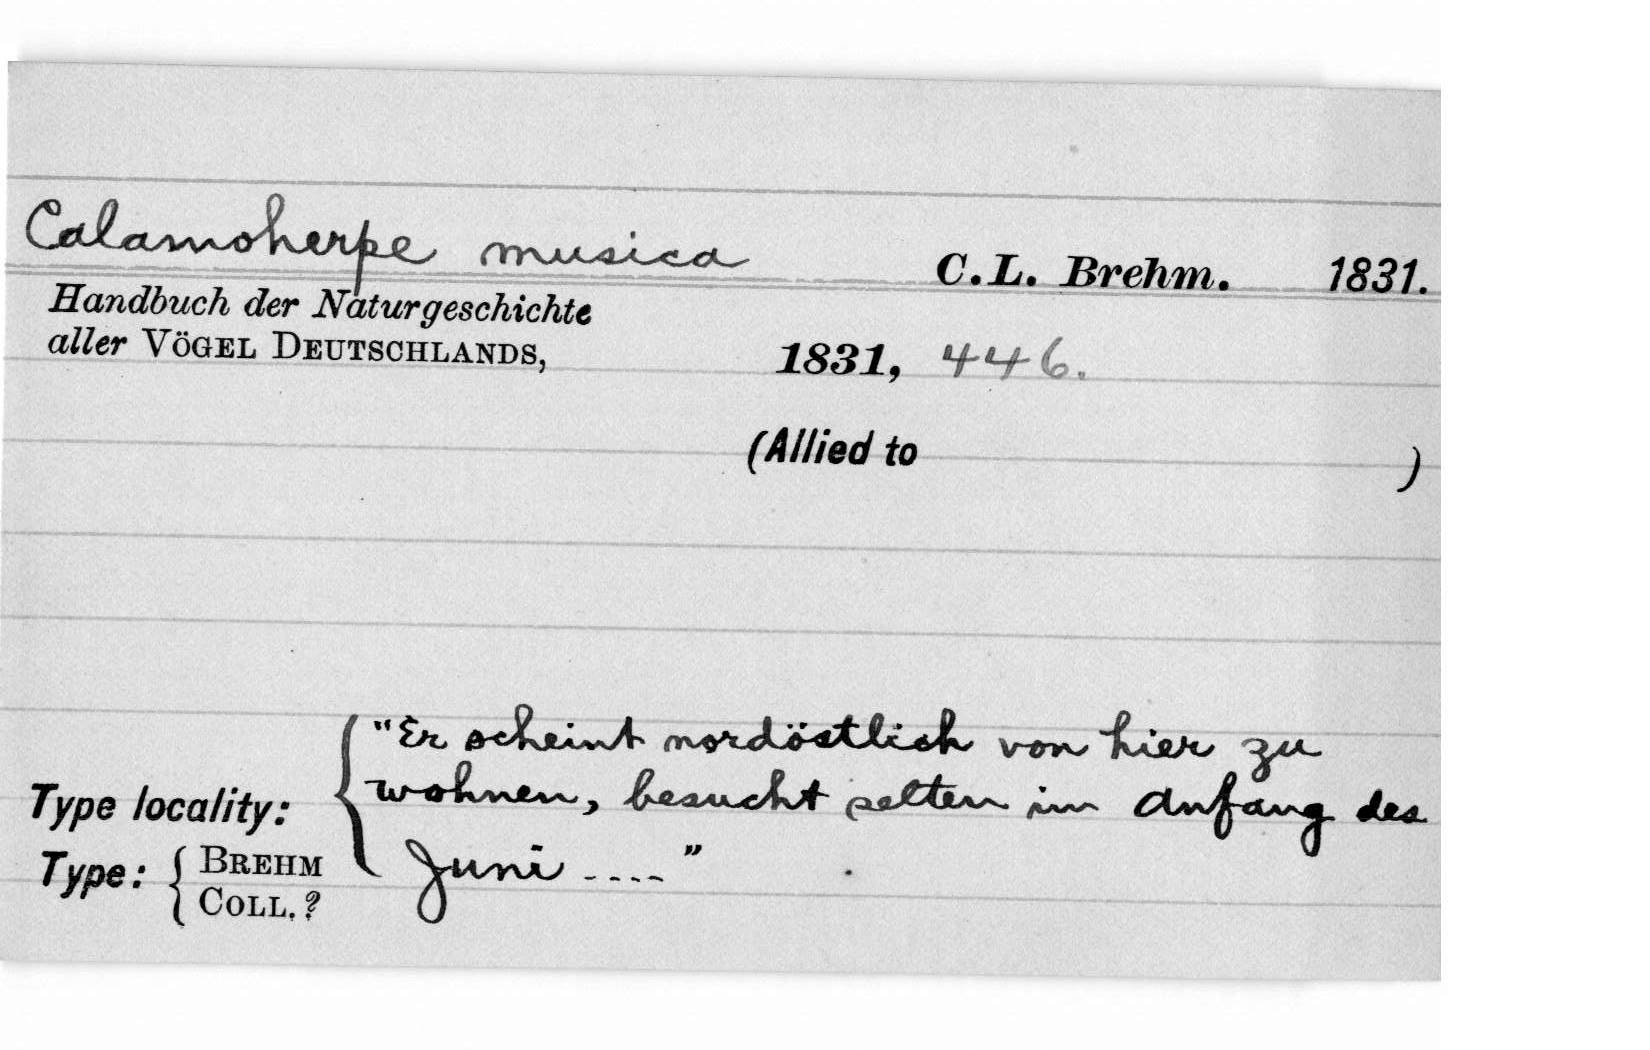 Calamoherpe musica C.L. Brehm. 1831.
Handbuch der Naturgeschichte
aller VÖGEL DEUTSCHLANDS, 1831, 446.
(Allied to )
"Er scheint nordöstlich von hier zu
Type locality: wohnen, besucht selten im Anfang des
Juni ----"
Type: BREHM
COLL.?